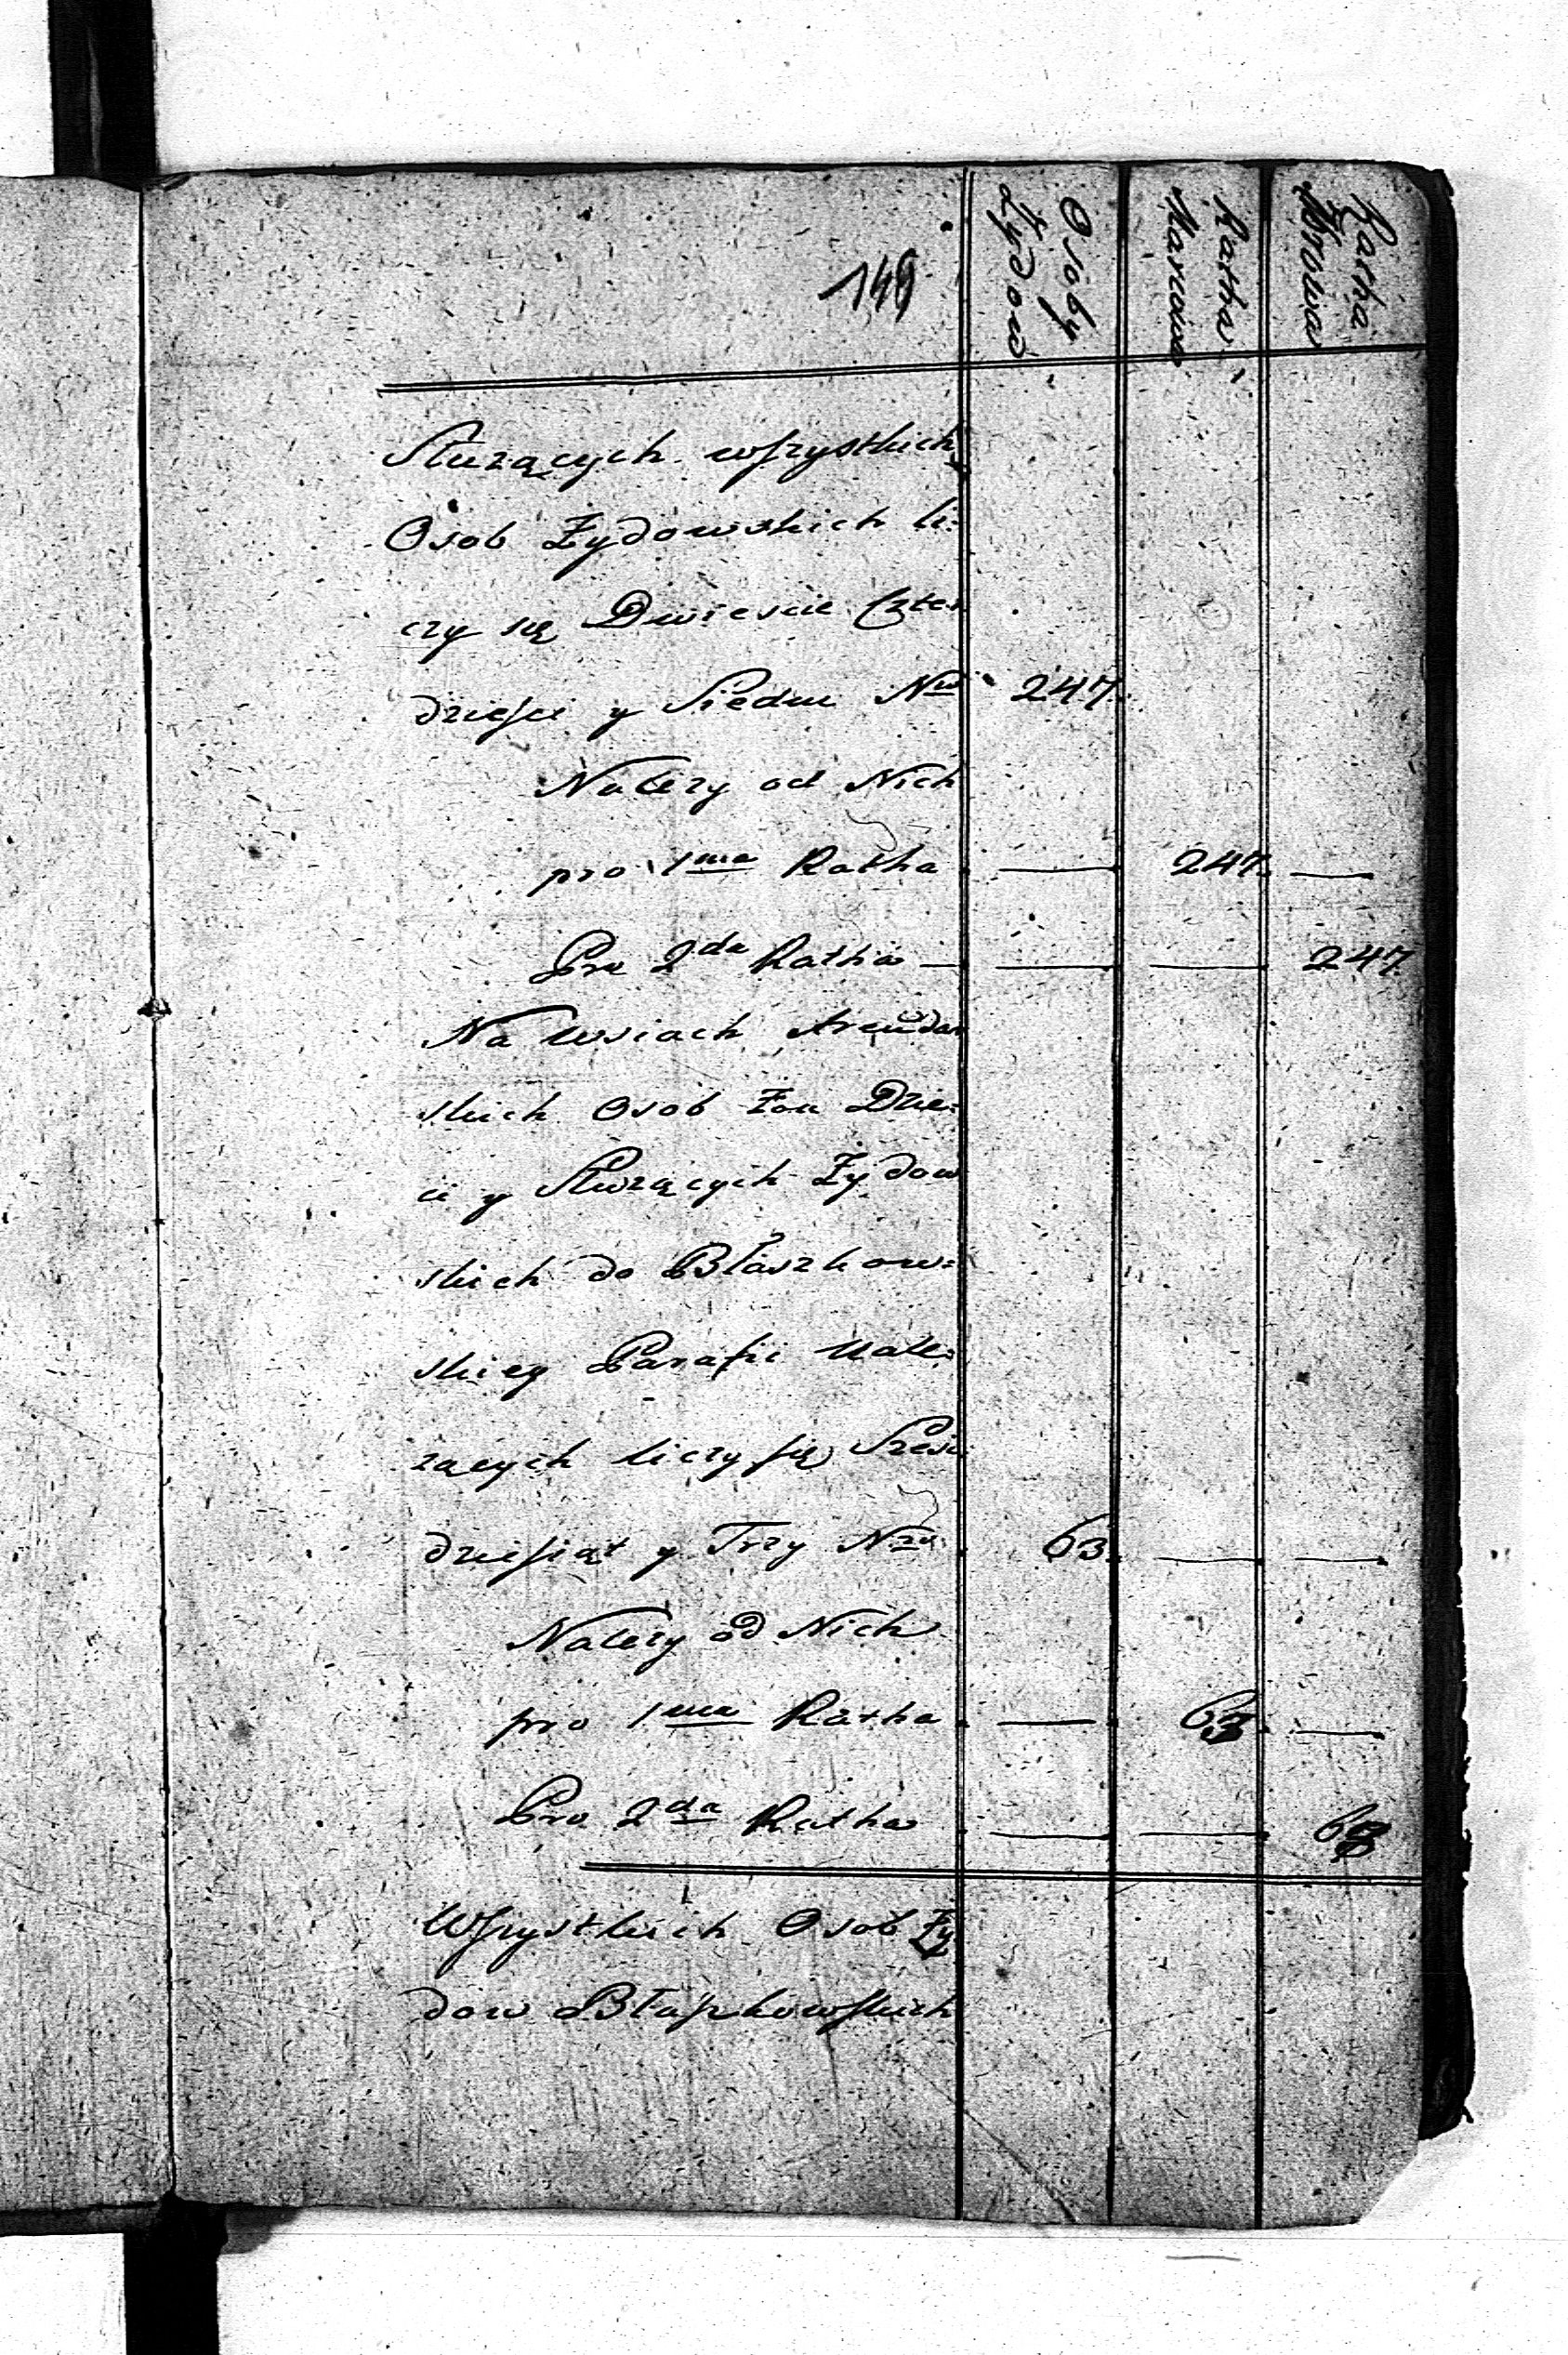 149
Osoby Zydow
Ratha Marcowa
Ratha Wrzesniowa
Sluzących wſzystkich
Osob Żydowskich li=
czy się Dwiescie Czter
dzieſci y Siedm Nro 247.
Nalezy od Nich
pro 1ma Ratha — 247. —
Pro 2da Ratha — — — 247.
Na Wsiach Arendar
skich Osob Żon Dzie=
ci y Sluzących Żydow
skich do Błaszkow=
skiey Parafii nale=
zących liczy ſię Szesć
dzieſiąt y Trzy Nro 63. — —
Nalezy od Nich
pro 1ma Ratha — 63. —
Pro 2da Ratha — — 63
Wſzystkich Osob Ży
dow Błaſzkowſkich